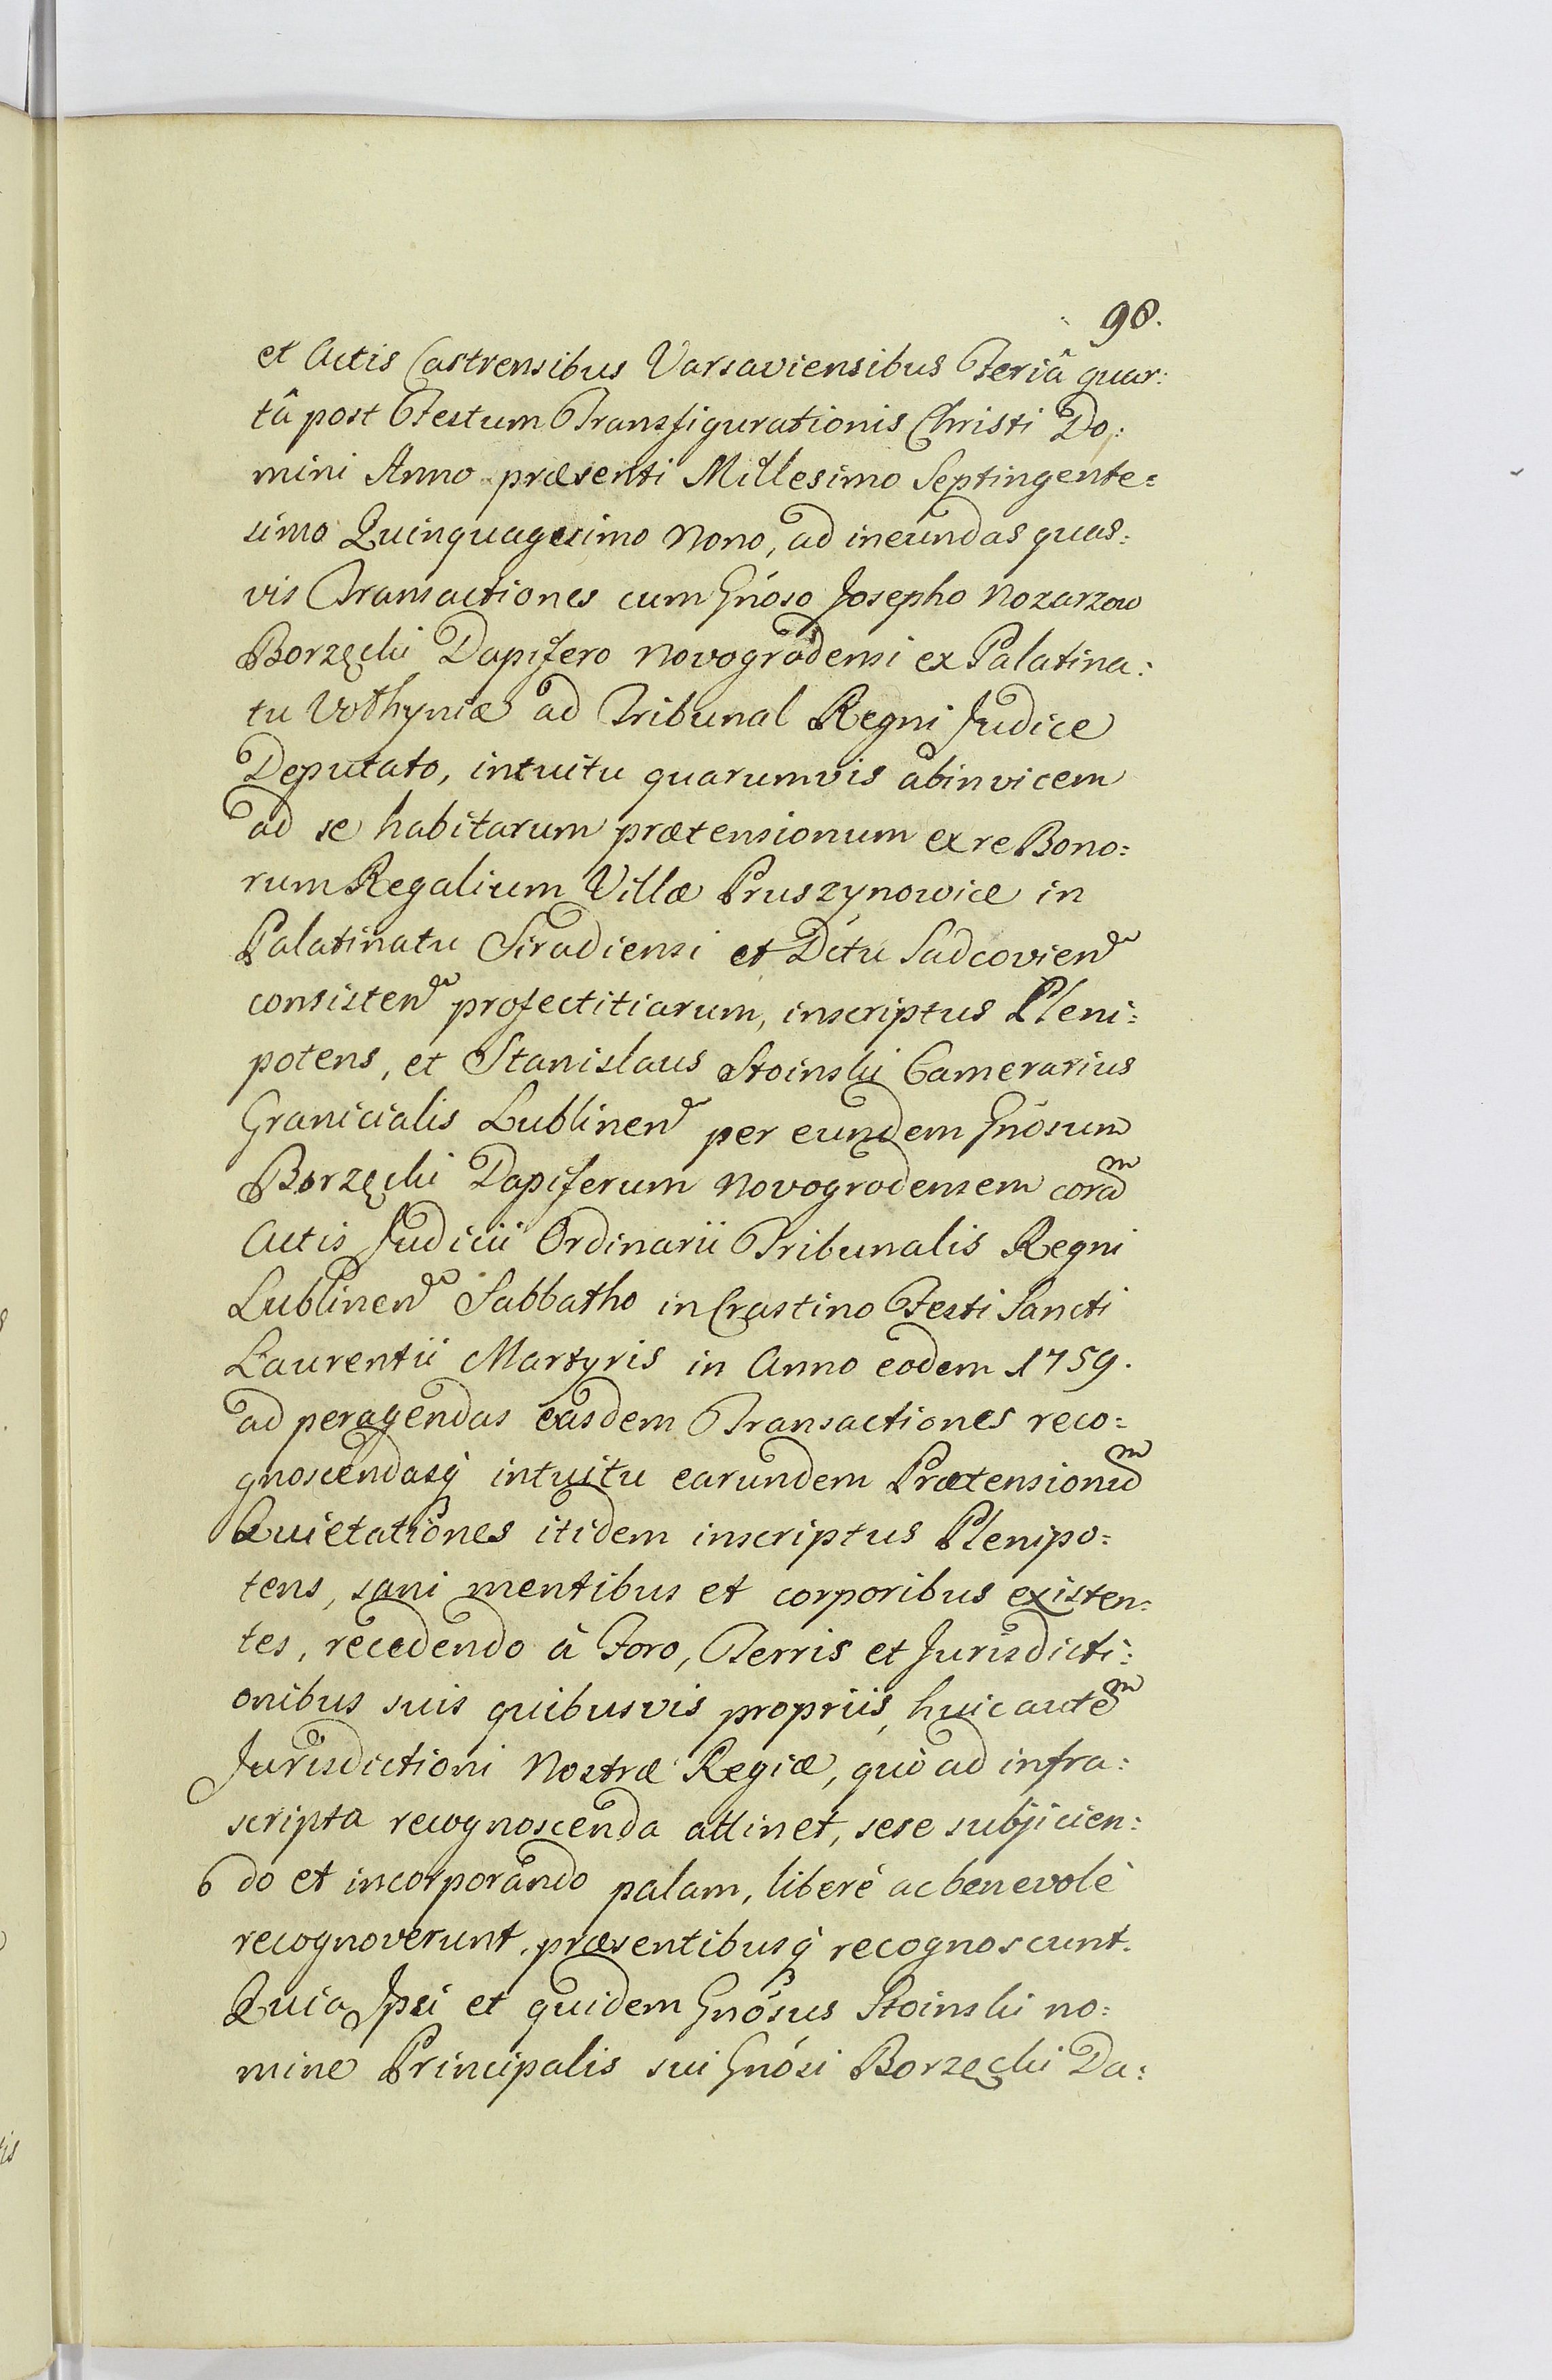 98.
et Actis Castrensibus Varsaviensibus Feriâ quar:
tâ post Festum Transfigurationis Christi Do:
mini Anno præsenti Millesimo Septingente=
simo Quinquagesimo Nono, ad ineundas quas:
vis Transactiones cum Gnóso Josepho Nozarzow
Borzęcki Dapifero Novogrodensi ex Palatina:
tu Volhyniæ ad Tribunal Regni Judice
Deputato, intuitu quarumvis abinvicem
ad se habitarum prætensionum ex re Bono=
rum Regalium Villæ Pruszynowice in
Palatinatu Siradiensi et Dctú Sadcovien
consisten profectitiarum, inscriptus Pleni:
potens, et Stanislaus Stoinski Camerarius
Granicialis Lublinen per eundem Gnósum
Borzęcki Dapiferum Novogrodensem coram
Actis Judicii Ordinarii Tribunalis Regni
Lublinen Sabbatho in Crastino Festi Sancti
Laurentii Martyris in Anno eodem 1759.
ad peragendas easdem Transactiones reco=
gnoscendasq́ intuitu earundem Prætensionum
Quietationes itidem inscriptus Plenipo=
tens, sani mentibus et corporibus existen=
tes, recedendo à Foro, Terris et Jurisdicti:
onibus suis quibusvis propriis, huic autem
Jurisdictioni Nostræ Regiæ, quò ad infra:
scripta recognoscenda attinet, sese subjicien:
do et incorporando palam, liberè ac benevolè
recognoverunt, præsentibusq́ recognoscunt.
Quia Ipsi et quidem Gnósus Stoinski no:
mine Principalis sui Gnósi Borzęcki Da: